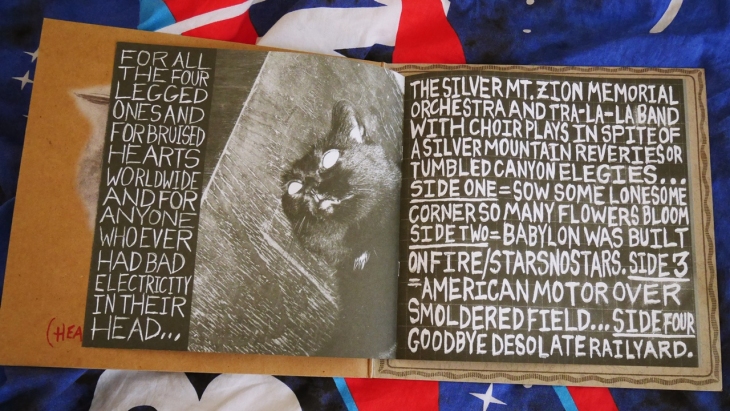 FOR ALL
THE FOUR
LEGGED
ONES AND
FOR BRUISED
HEARTS
WORLDWIDE
AND FOR
ANYONE
WHO EVER
HAD BAD
ELECTRICITY
IN THEIR
HEAD...
(HEA
THE SILVER MT. ZION MEMORIAL
ORCHESTRA AND TRA-LA-LA BAND
WITH CHOIR PLAYS IN SPITE OF
A SILVER MOUNTAIN REVERIES OR
TUMBLED CANYON ELEGIES...
SIDE ONE = SOW SOME LONESOME
CORNER SO MANY FLOWERS BLOOM
SIDE TWO = BABYLON WAS BUILT
ON FIRE/STARSNOSTARS. SIDE 3
= AMERICAN MOTOR OVER
SMOLDERED FIELD... SIDE FOUR
GOODBYE DESOLATE RAILYARD.